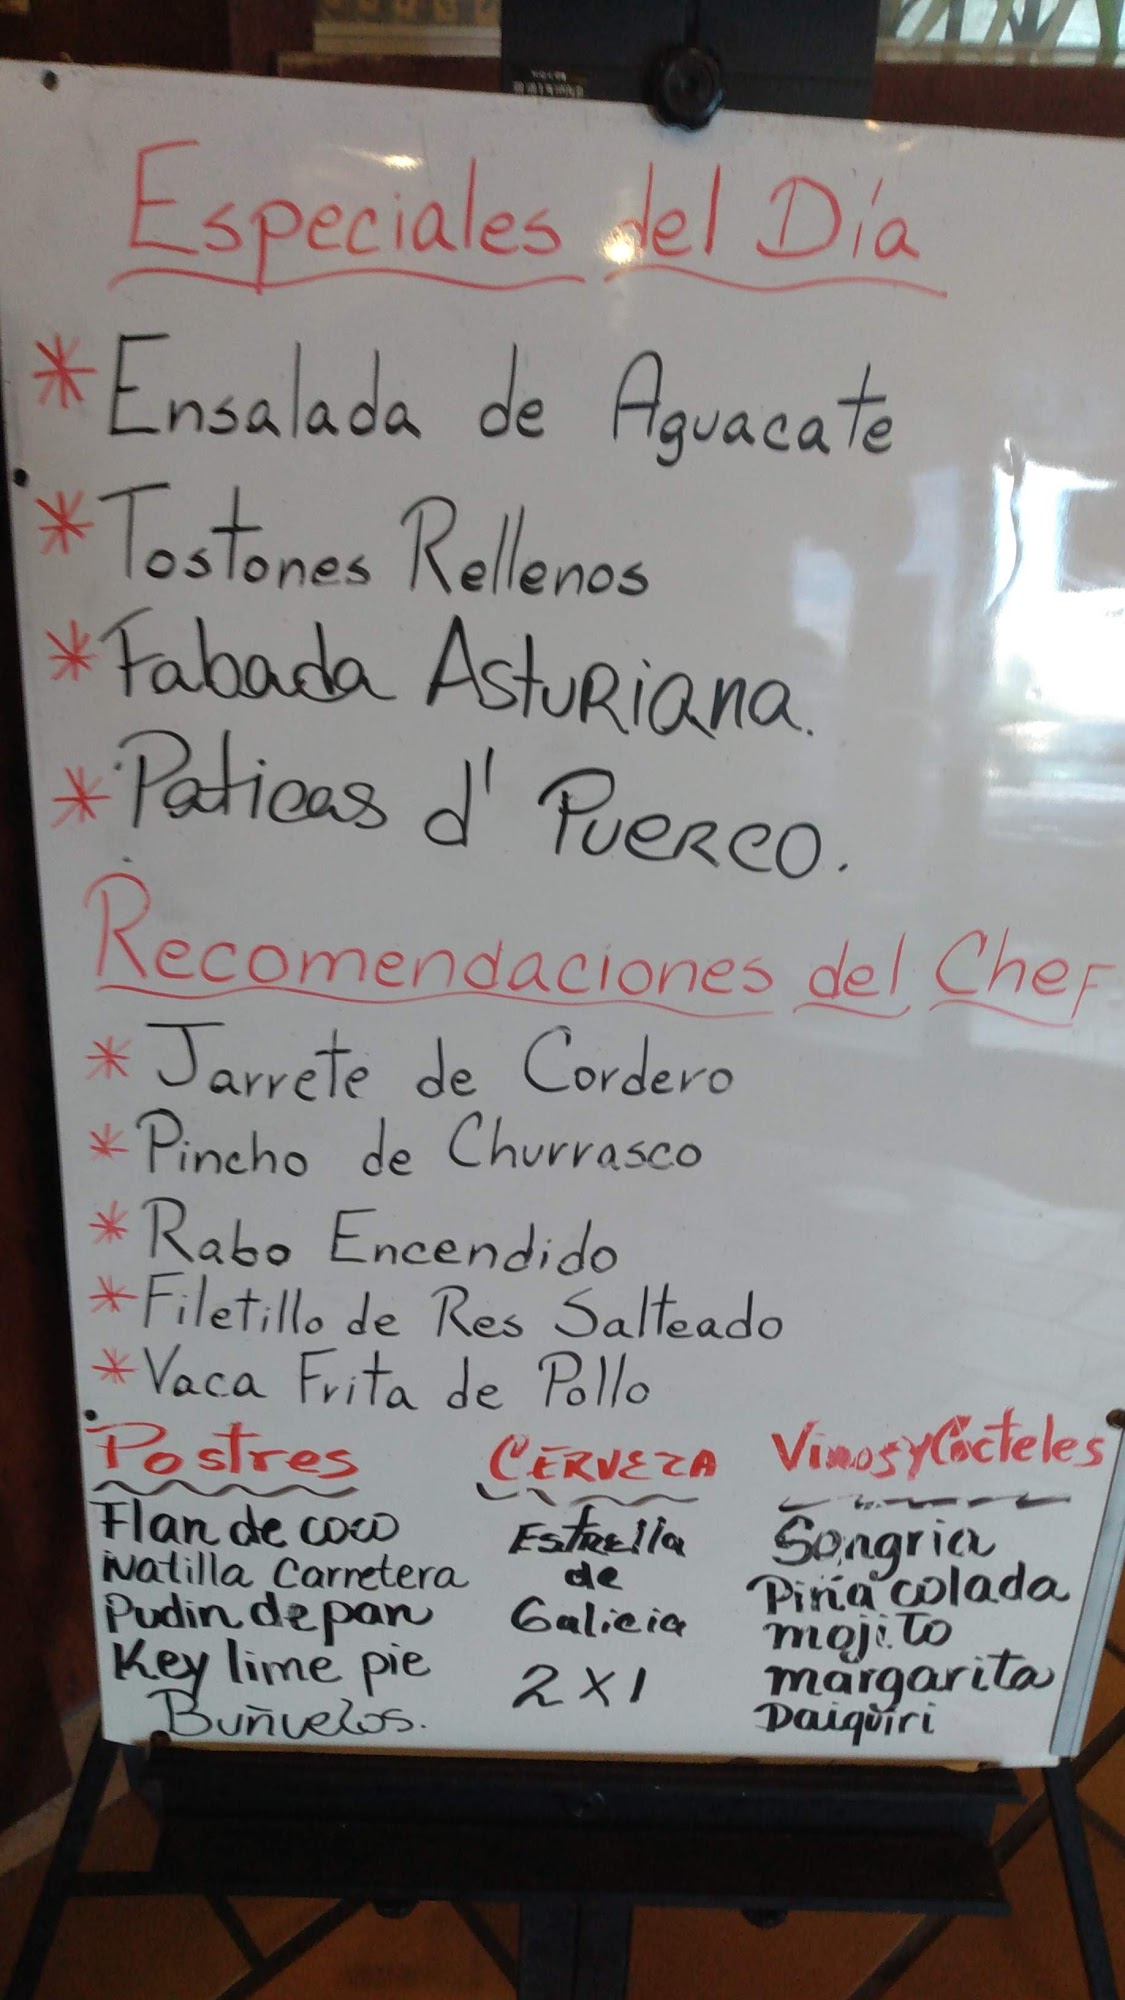 Especiales del Día
* Ensalada de Aguacate
* Tostones Rellenos
* Fabada Asturiana.
* Paticas d' Puerco.
Recomendaciones del Chef
* Jarrete de Cordero
* Pincho de Churrasco
* Rabo Encendido
* Filetillo de Res Salteado
* Vaca Frita de Pollo
Postres
Flan de coco
Natilla Carretera
Pudin de pan
Key lime pie
Buñuelos.
CERVEZA
Estrella
de
Galicia
2 x 1
Vinos y Cócteles
Sangria
Piña colada
mojito
margarita
Daiquiri